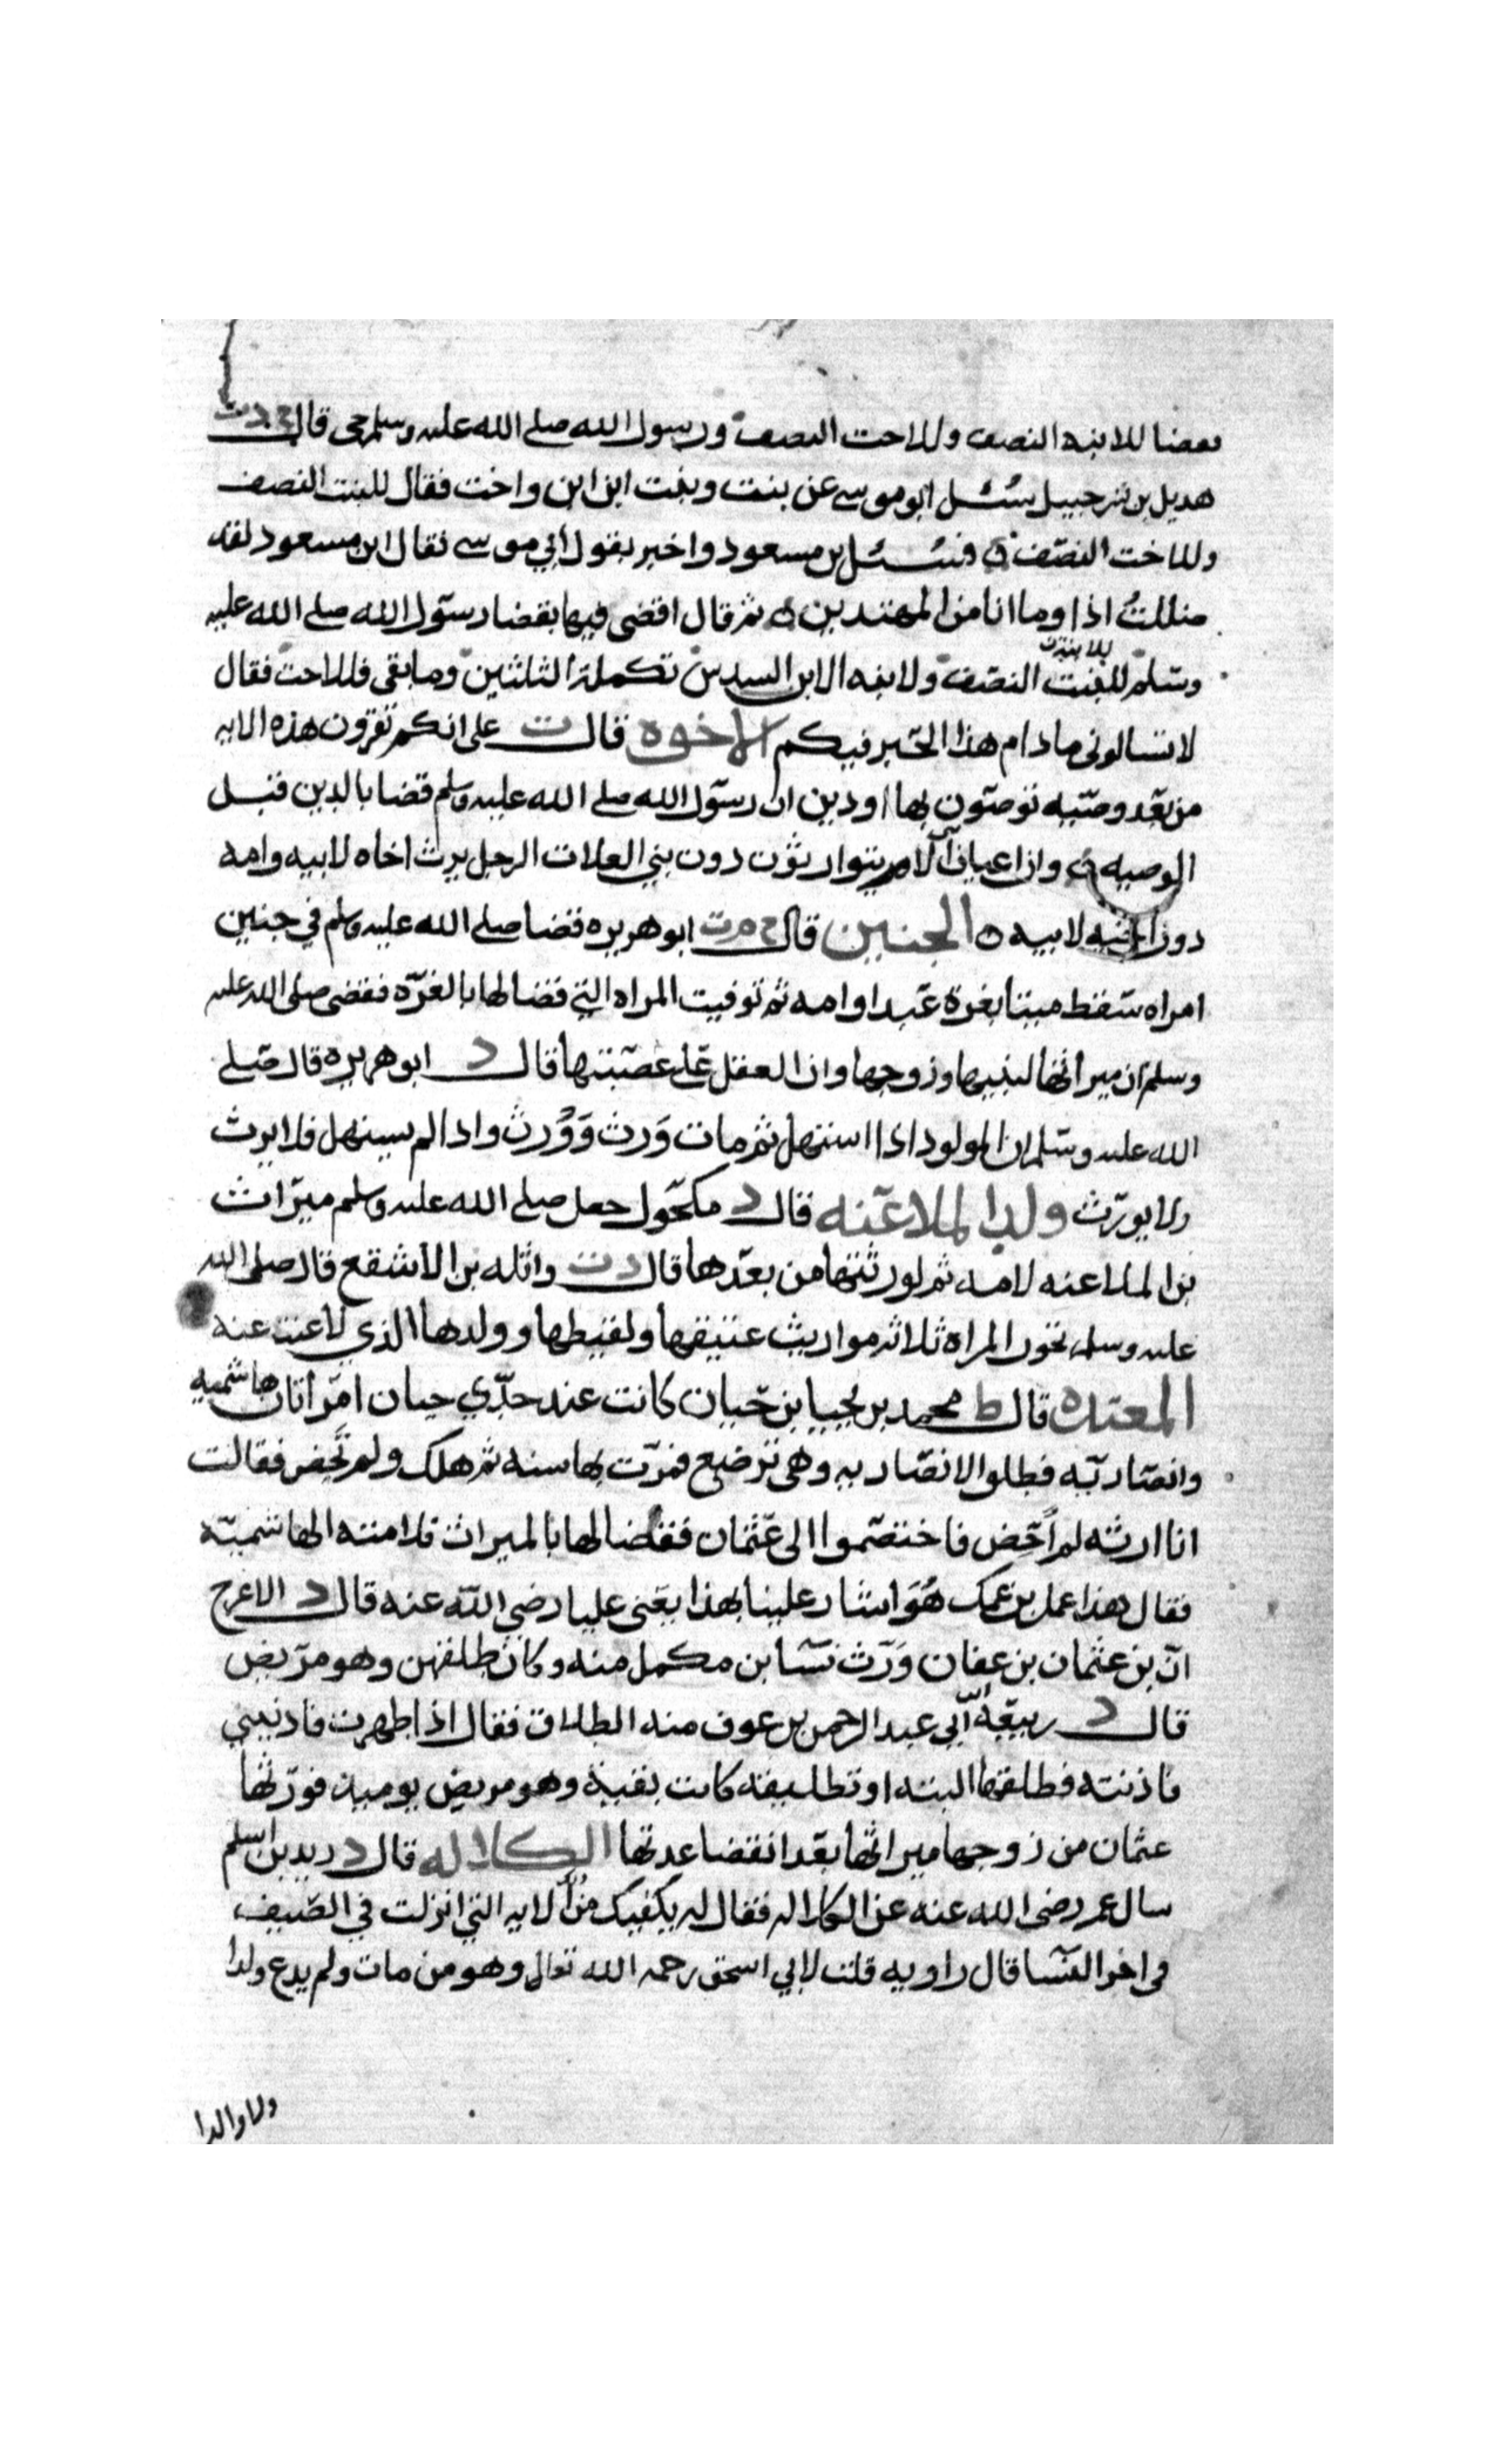 فقضا للابنه النصف وللاخت النصف ورسول الله صلى الله عليه وسلم حي قال خ د ت
هديل بن شرحبيل سُئل ابو موسى عن بنت وبنت ابن ابن واخت فقال للبنت النصف
وللاخت النصف ه فسُئل بن مسعود واخبر بقول ابي موسى فقال ابن مسعود لقد
ضللتُ اذا وما انا من المهتدين ه ثم قال اقضى فيها بقضا رسول الله صلى الله عليه
وسلم للبنت للابنة النصف ولابنه الابن السدس تكملة الثلثين وما بقى فللاخت فقال
لا تسالونى ما دام هذا الحبر فيكم الاخوه قال ت على انكم تقرون هذه الايه
من بعد وصيه توصون بها او دين ان رسول الله صلى الله عليه وسلم قضا بالدين قبل
الوصيه ه وان اعيان الام يتوارثون دون بني العلات الرجل يرث اخاه لابيه وامه
دون اخيه لابيه ه الجنين قال خ م ت ابو هريره قضا صلى الله عليه وسلم في جنين
امراه سقط ميتا بغرة عبد او امه ثم توفيت المراه التي قضا لها بالغرّه فقضى صلى الله عليه
وسلم ان ميراثها لبنيها وزوجها وان العقل على عصبتها قال د ابو هريره قال صلى
الله عليه وسلم ان المولود اذا استهل ثم مات وَرث وَوُرث واذا لم يستهل فلا يرث
ولا يورّث ولد الملاعنه قال د مكحول جعل صلى الله عليه وسلم ميراث
بن الملاعنه لامه ثم لورثتها من بعدها قال د ت واثله بن الاشقع قال صلى الله
عليه وسلم تحوز المراه ثلاثه مواريث عتيقها ولقيطها وولدها الذي لاعنت عنه
المعتده قال ط محمد بن يحيا بن حبان كانت عند جدّي حبان امرأتان هاشميه
وانصاريّه فطلق الانصاريه وهى ترضع فمرّت بها سنه ثم هلك ولم تَحِض فقالت
انا ارثه لم اَحِض فاختصموا الى عثمان فقضا لها بالميراث فلامته الهاشميّه
فقال هذا عمل بن عمك هُوَ اشار علينا بهذا يعني عليا رضي الله عنه قال د الاعرج
انّ بن عثمان بن عفان وَرّث نسا بن مكمل منه وكان طلقهن وهو مريض
قال د ربيعه ابي عبد الرحمن بن عوف منه الطلاق فقال اذا طهرت فاذنيني
فاذنته فطلقها البته او تطليقه كانت بقية وهو مريض يوميه فورّثها
عثمان من زوجها ميراثها بعد انقضا عدتها الكلاله قال د زيد بن اسلم
سال عمر رضى الله عنه عن الكلاله فقال له يكفيك من الايه التي انزلت في الصيف
في اخر النسا قال راويه قلت لابي اسحق رحمه الله تعالى وهو من مات ولم يدع ولدا
ولا والدا